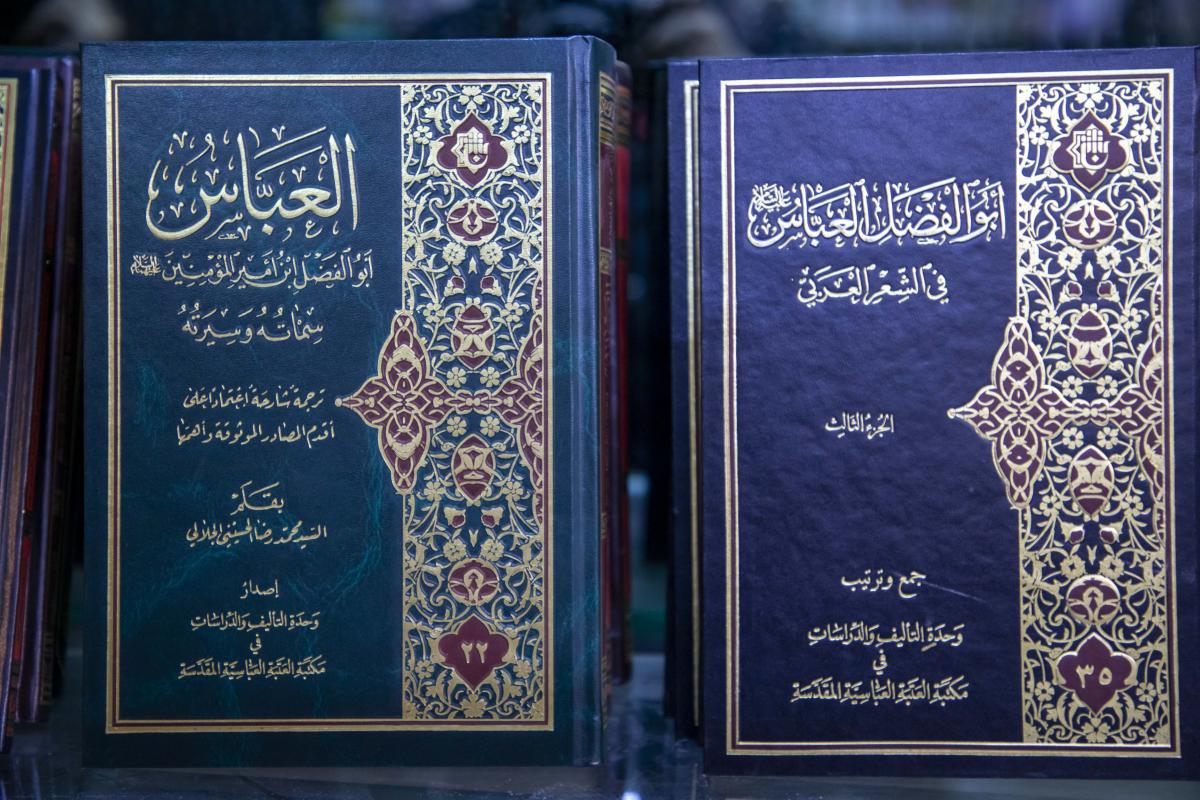 العَبَّاسُ
أَبُو الفَضْلِ ابْنُ أَمِيرِ المُؤْمِنِينَ عليه السلام
سِمَاتُهُ وَسِيرَتُهُ
تَرجمةٌ شَارِحَةٌ اعْتِمَادًا عَلى
أقدم المصادر الموثوقة وأهمّها
بِقَلَم
السيّد محمّد رضا الحسيني الجلالي
إصدارُ
وَحْدَةِ التَّأليفِ وَالدِّرَاسَاتِ
في
مَكتَبَةِ العَتَبَةِ العَبَّاسِيَّةِ المُقَدَّسَةِ
٢٢
أَبُو الفَضْلِ العَبَّاسُ عليه السلام
فِي الشِّعْرِ العَرَبِيِّ
الجُزءُ الثَّالِث
جمع وترتيب
وَحْدَةِ التَّأليفِ وَالدِّرَاسَاتِ
في
مَكتَبَةِ العَتَبَةِ العَبَّاسِيَّةِ المُقَدَّسَةِ
٣٥